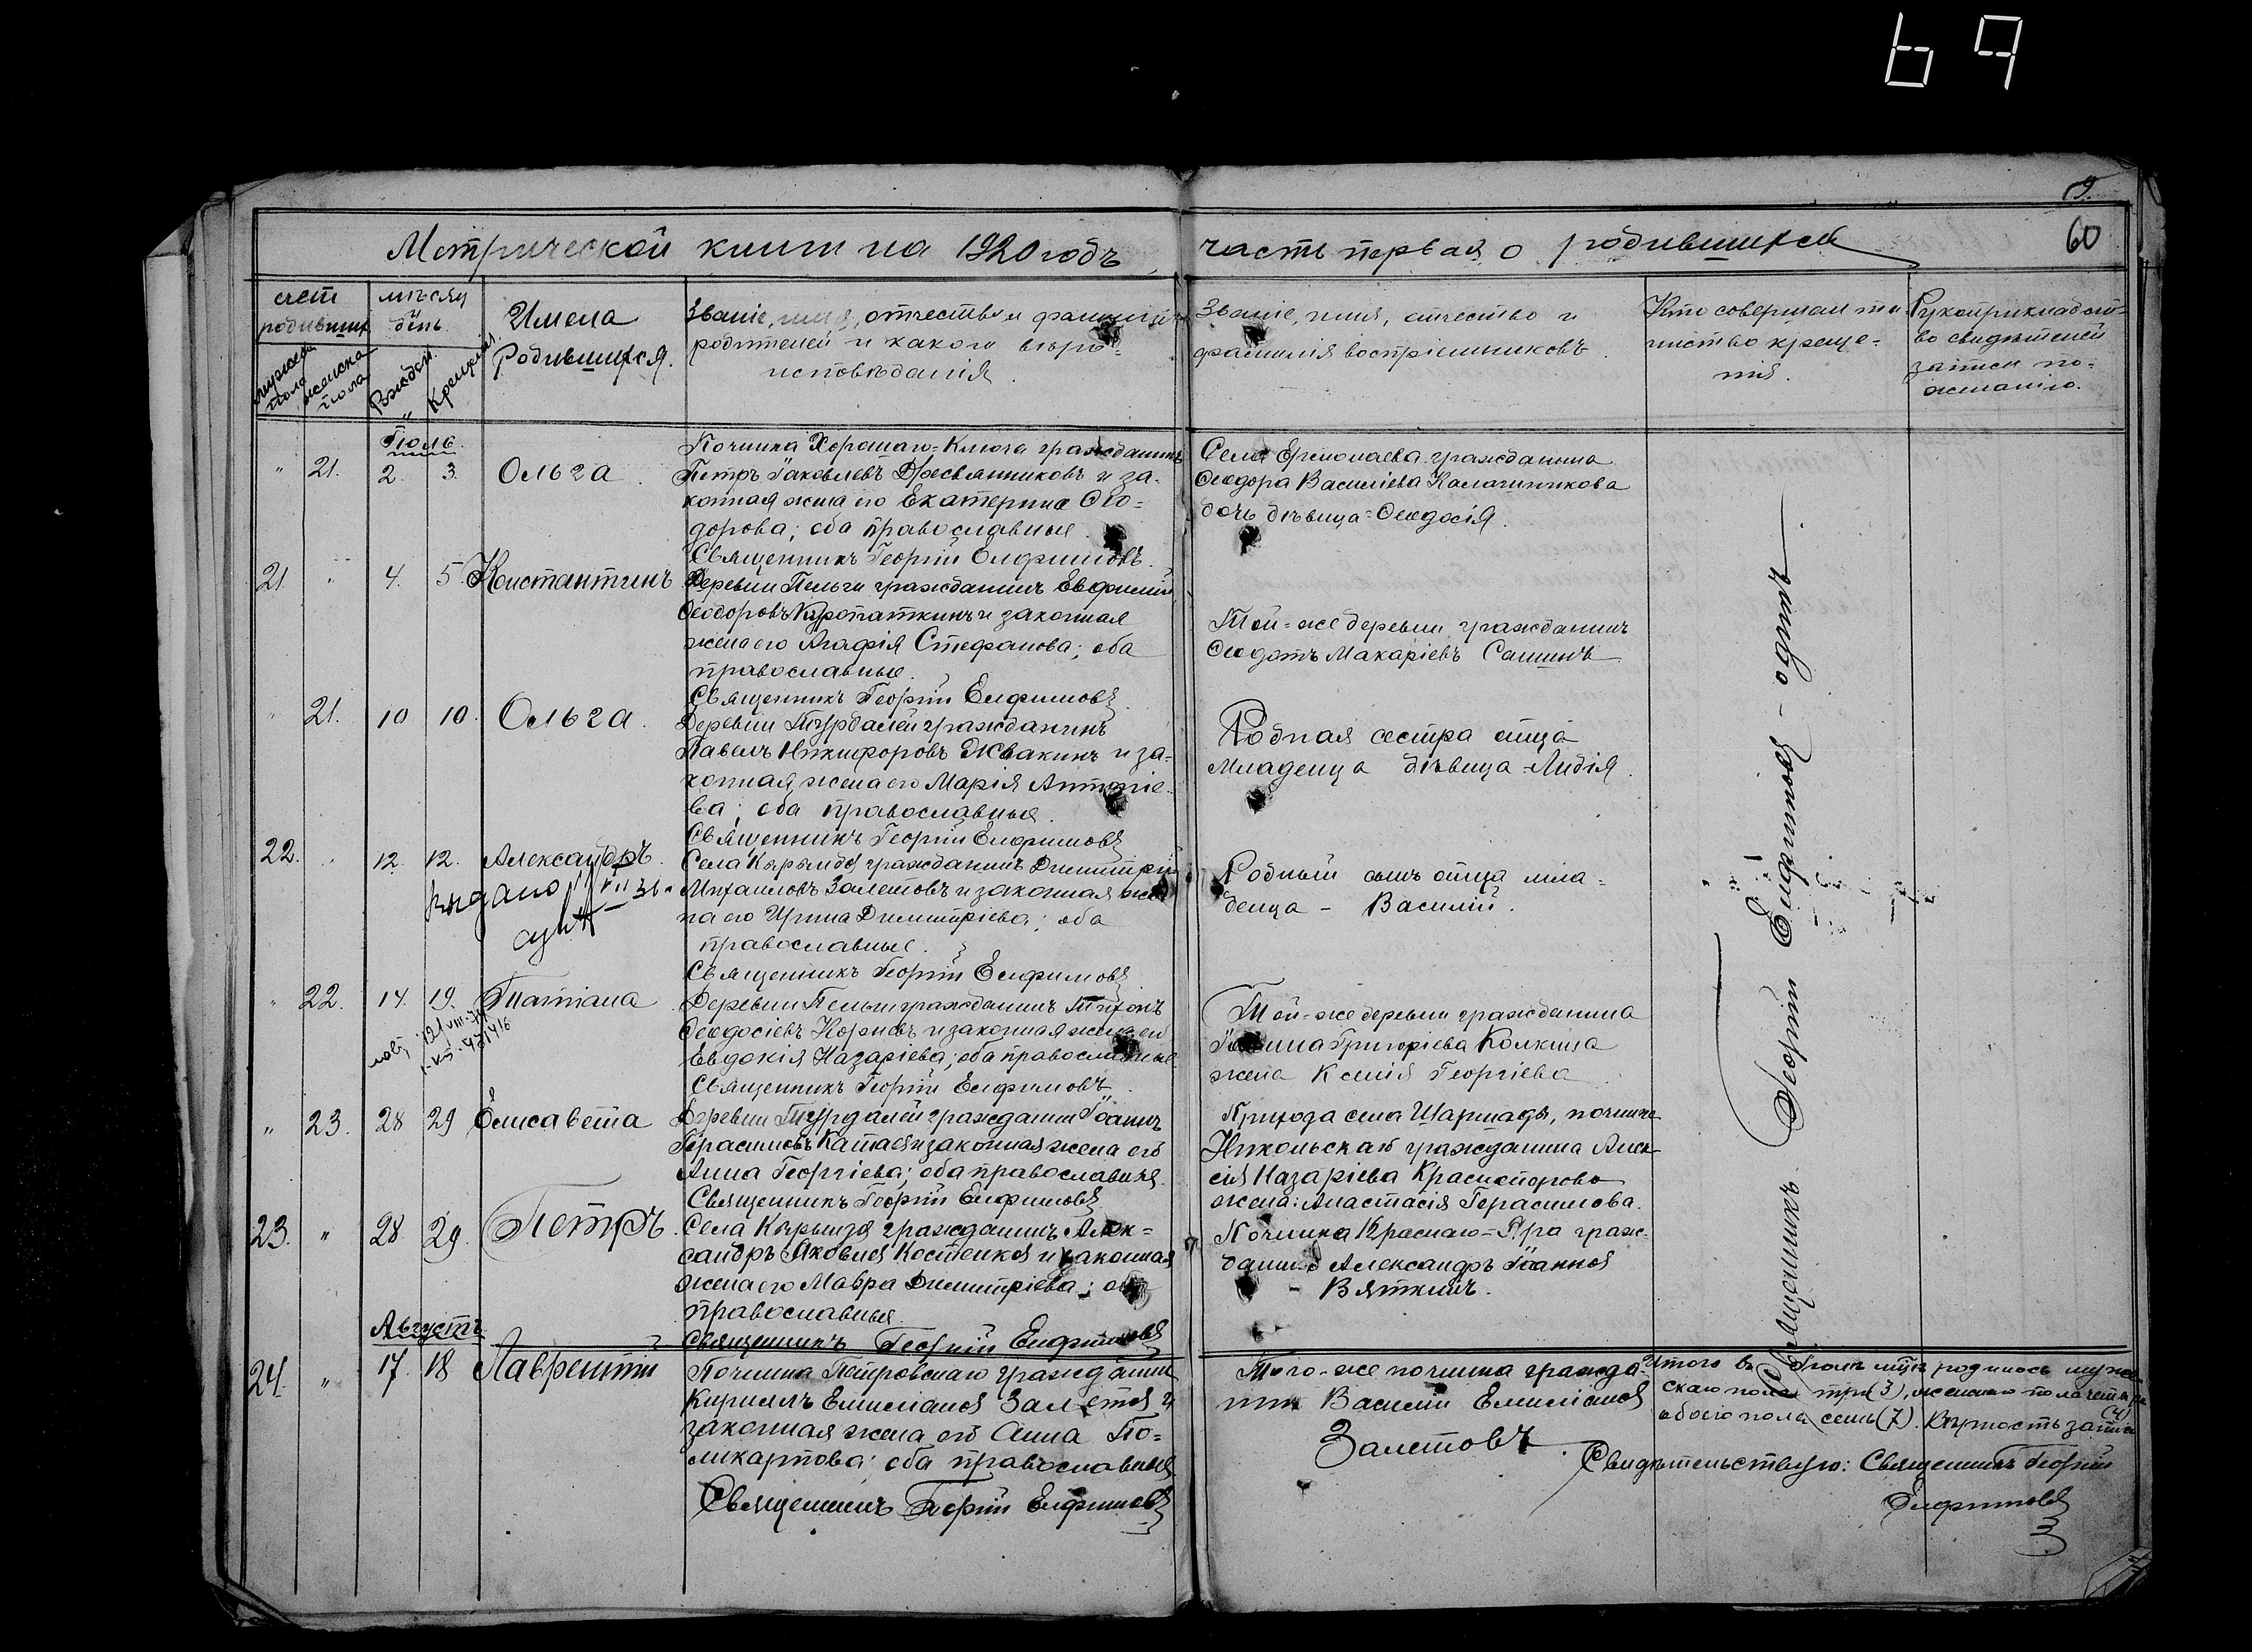 69
9.
60
Метрической книги на 1920 годъ часть первая о родившихся
счет родившихся
мѣсяц и день
мужеска пола
женска пола
Рожден.
Крещенія.
Имена
Родившихся.
Званіе, имя, отчество и фамилія
родителей и какого вѣро=
исповѣданія.
Званіе, имя, отчество и
фамилія воспріемниковъ.
Кто совершал та-
инство креще=
нія.
Рукоприкладст-
во свидѣтелей
записи по=
желанію.
Іюль.
" 21. 2. 3. Ольга.
Починка Хорошаго=Ключа гражданинъ
Петръ Іаковлевъ Дресвянниковъ и за-
конная жена его Екатерина Ѳео=
дорова; оба православные.
Священникъ Георгій Елфимовъ.
Села Ермолаева гражданина
Ѳеодора Василіева Калашникова
дочь дѣвица=Ѳеодосія.
21. " 4. 5. Константинъ
Деревни Пельги гражданинъ Евфимій
Ѳеодоровъ Куропаткинъ и законная
жена его Агафія Стефанова; оба
православные.
Священникъ Георгій Елфимовъ
Той=же деревни гражданинъ
Ѳеодотъ Макаріевъ Сашинъ
" 21. 10 10. Ольга.
Деревни Турдалей гражданинъ
Павелъ Никифоровъ Жвакинъ и за-
конная жена его Марія Антоніе-
ва; оба православные.
Священникъ Георгій Елфимовъ
Родная сестра отца
младенца дѣвица=Лидія.
22. " 12. 12. Александръ.
выдано
Села Кырында гражданинъ Димитрій
Михаиловъ Залетовъ и законная же-
на его Ирина Димитріева; оба
православные.
Священникъ Георгій Елфимовъ
Родный сынъ отца мла=
денца – Василій.
" 22. 14. 19. Татіана
Деревни Пельги гражданинъ Тихонъ
Ѳеодосіевъ Корневъ и законная жена его
Евдокія Назаріева; оба православные
Священникъ Георгій Елфимовъ.
Той=же деревни гражданина
Григоріева Колкина
жена Ксенія Георгіева
" 23. 28 29 Елисавета
Деревни Турдалей гражданин Іоаннъ
Герасимовъ Катаев и законная жена его
Анна Георгіева; оба православные.
Священникъ Георгій Елфимовъ
Прихода села Шаршады, починка
Никольскаго гражданина Алек-
сія Назаріева Красноперова
жена: Анастасія Герасимова.
23. " 28. 29. Петръ.
Села Кырында гражданинъ Алек=
сандръ Яковлев Костенков и законная
жена его Мавра Димитріева; оба
православные.
Священникъ Георгій Елфимовъ
Починка Краснаго=Яра граж-
данинъ Александръ Іоаннов
– Вяткинъ.
Августъ
24. " 17. 18 Лаврентій
Починка Петровскаго гражданин
Кириллъ Емиліанов Залетов и
законная жена его Анна По=
ликарпова; оба православные
Священникъ Георгій Елфимовъ
Того-же починка гражда-
нин Василій Емиліанов
Залетовъ.
Священникъ Георгій Елфимовъ – одинъ.
Итого въ Іюлѣ мѣс. родилось муже-
скаго пола три (3), женскаго пола четыре
(4)
обоего пола семь (7). Вѣрность записи
Свидѣтельствую: Священникъ Георгій
Елфимовъ